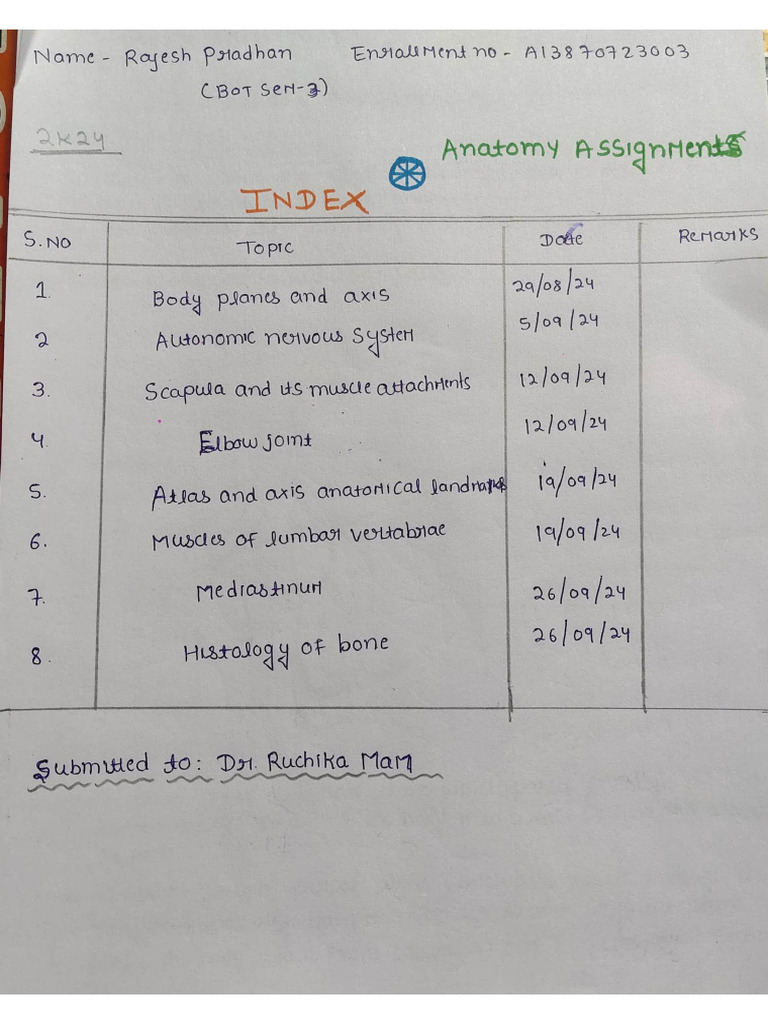 Name - Rajesh Pradhan Enrollment no - A13870723003
(BOT Sem-3)
2K24
Anatomy Assignments
INDEX
S.No Topic Date Remarks
1. Body planes and axis 29/08/24
2 Autonomic nervous System 5/09/24
3. Scapula and its muscle attachments 12/09/24
4. Elbow joint 12/09/24
5. Atlas and axis anatomical landmarks 19/09/24
6. Muscles of lumbar vertabrae 19/09/24
7. Mediastinum 26/09/24
8. Histology of bone 26/09/24
Submitted to: Dr. Ruchika Mam